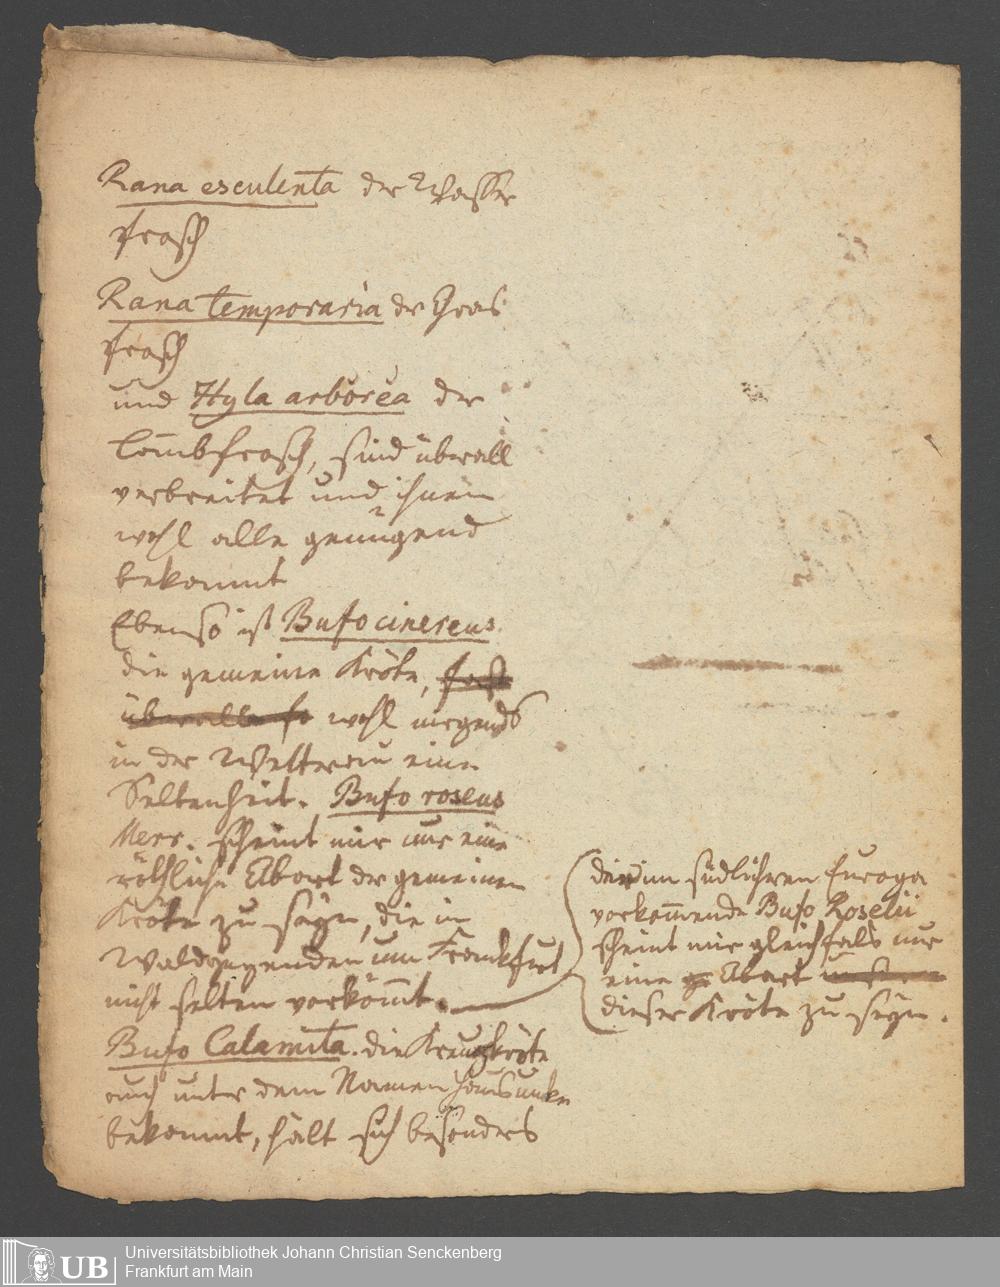 Rana esculenta der Wasser
frosch
Rana temporaria der Gras
frosch
und Hyla arborea der
Laubfrosch, sind überall
verbreitet und ihnen
wohl alle genügend
bekannt
Ebenso ist Bufo cinereus
die gemeine Kröte, fast
überall wohl nirgends
in der Wetterau eine
Seltenheit. Bufo roseus
Merr. scheint mir nur eine
röthliche Abart der gemeinen
Kröte zu seyn, die in
Waldgegenden um Frankfurt
nicht selten vorkömmt.
die im südlichren Europa
vorkommende Bufo Roselii
scheint mir gleichfals nur
eine Abart
dieser Kröte zu seyn.
Bufo Calamita. die Kreuzkröte
auch unter dem Namen Hausunke
bekannt, hält sich besonders
Universitätsbibliothek Johann Christian Senckenberg
UB Frankfurt am Main